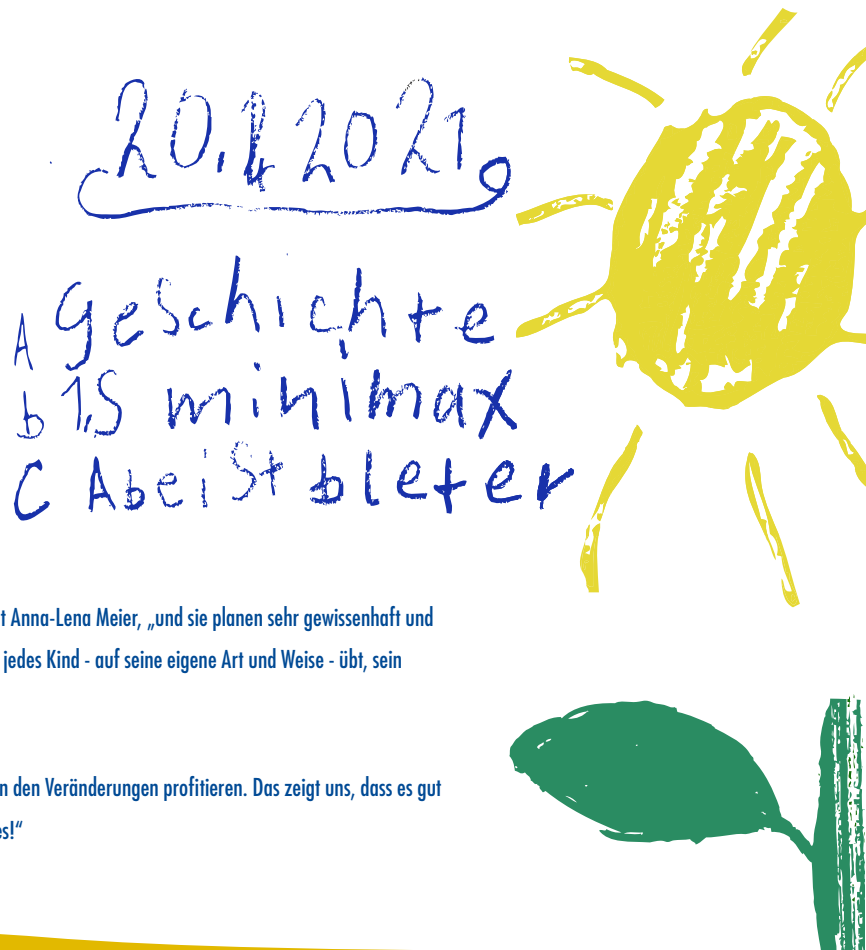 20.4 2021
A Geschichte
b 1,5 minimax
C Abeist bleter
t Anna-Lena Meier, „und sie planen sehr gewissenhaft und
jedes Kind - auf seine eigene Art und Weise - übt, sein
n den Veränderungen profitieren. Das zeigt uns, dass es gut
es!“